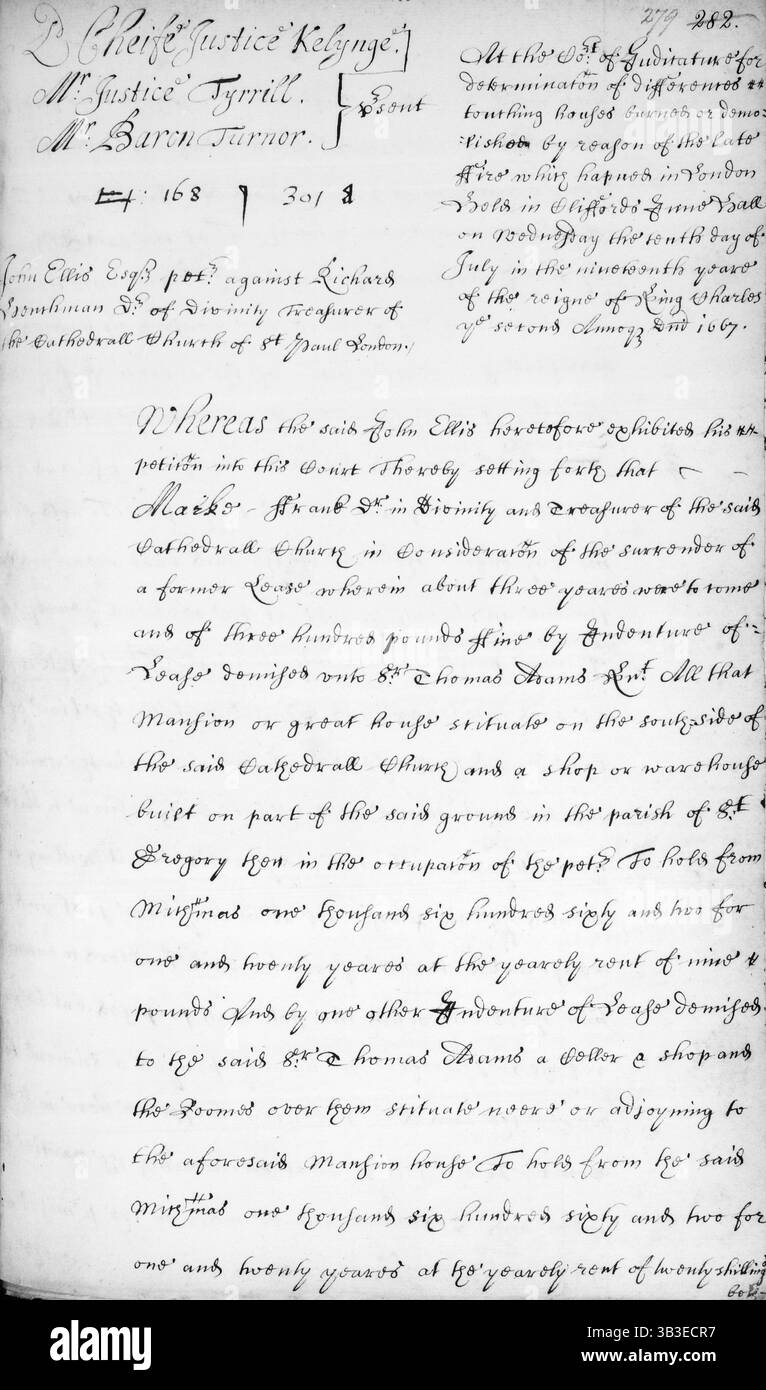 279 282.
Ld Cheife Justice Kelynge.
Mr. Justice Tyrrill.
Mr. Baron Turnor.
psent
168 301
At the Cort of Judicature for
determinatōn of differences
touching houses burned or demo-
lished by reason of the late
ffire which hapned in London
Held in Cliffords Inne Hall
on Wednesday the tenth day of
July in the nineteenth yeare
of the reigne of King Charles
ye second Annoq Dnī 1667.
John Ellis Esqr petr. against Richard
Dr. of Divinity Treasurer of
the Cathedrall Church of St Paul London.
Whereas the said John Ellis heretofore exhibited his
petitōn into this Court Thereby setting forth that
Marke ffrank Dr. in Divinity and Treasurer of the said
Cathedrall Church in Consideratōn of the surrender of
a former Lease wherein about three yeares were to come
and of three hundred pounds ffine by Indenture of
Lease demised unto Sr. Thomas Adams Knt. All that
Mansion or great house scituate on the south side of
the said Cathedrall Church and a shop or warehouse
built on part of the said ground in the parish of St.
Gregory then in the occupatōn of the petr. To hold from
Michmas one thousand six hundred sixty and two for
one and twenty yeares at the yearely rent of nine
pounds And by one other Indenture of Lease demised
to the said Sr. Thomas Adams a Celler a shop and
the Roomes over them scituate neere or adjoyning to
the aforesaid Mansion house To hold from the said
Michmas one thousand six hundred sixty and two for
one and twenty yeares at the yearely rent of twenty shillings
alamy
alamy
Image ID: 3B3ECR7
www.alamy.com